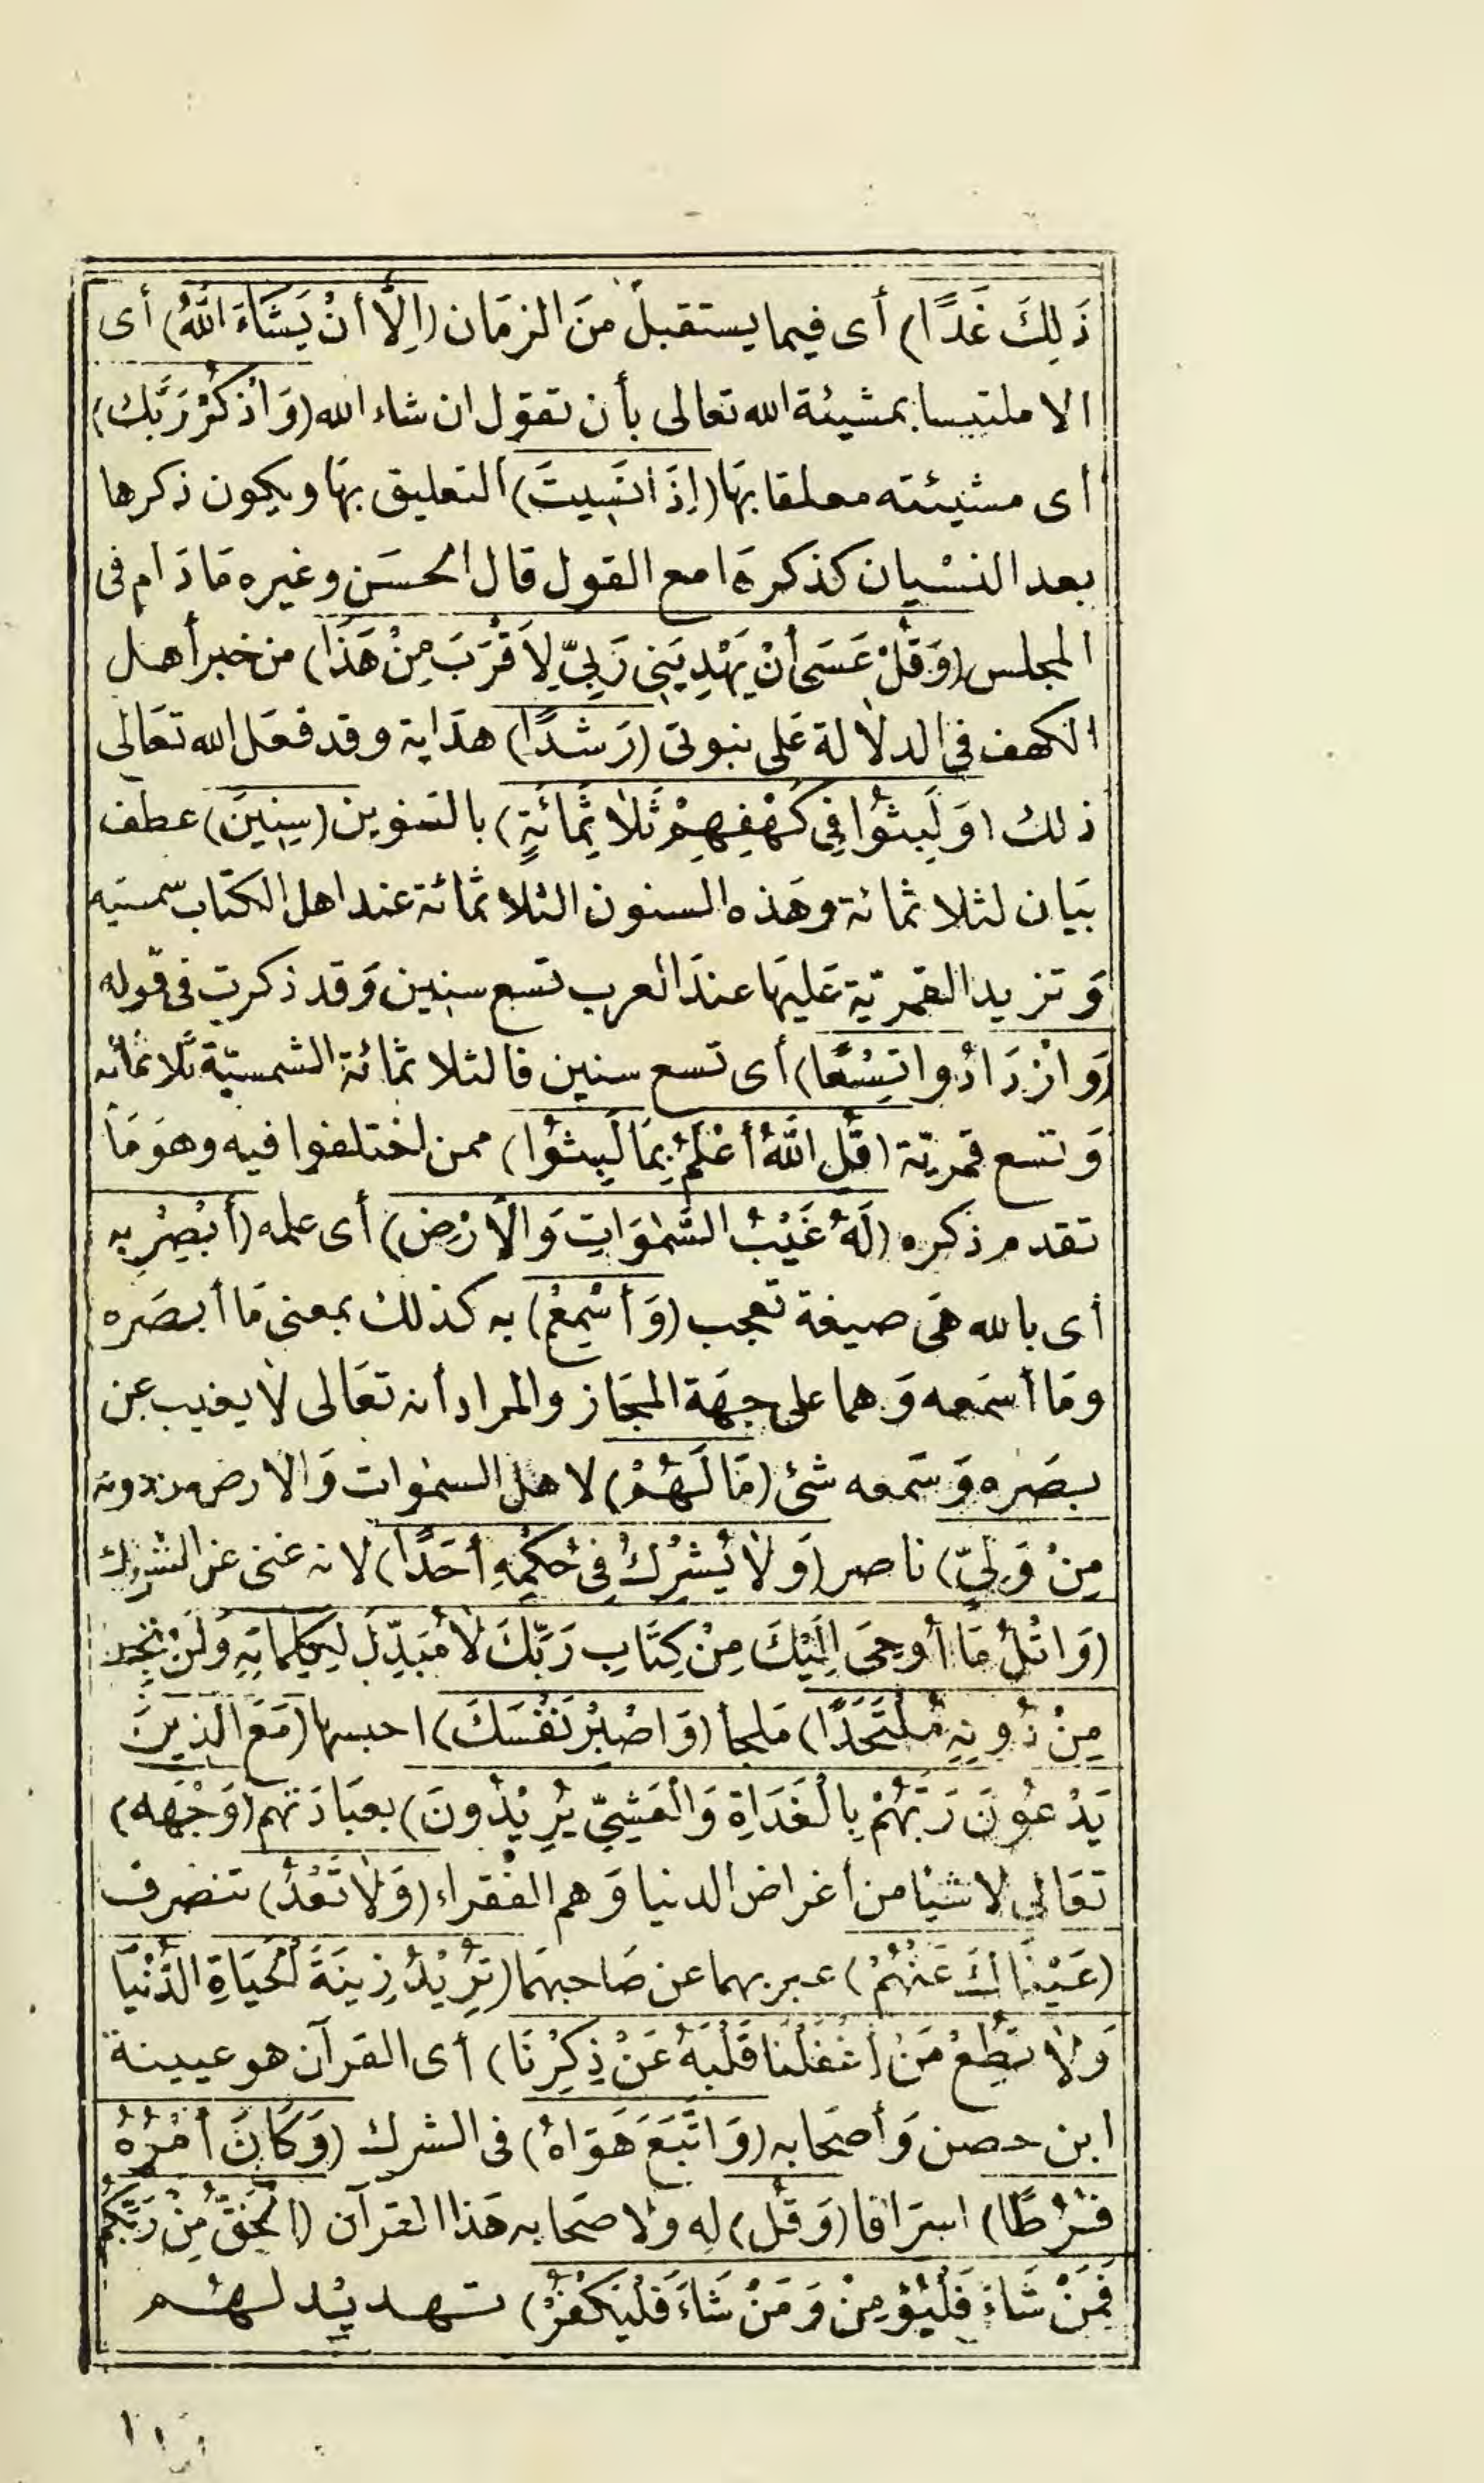 ذَلِكَ غَدًا) أى فيما يستقبل منَ الزمَان (اِلَّا أنْ يَشَاءَ اللهُ) أى
الا ملتبسا بمشيئة الله تعالى بأن تقول ان شاء الله (وَاذْكُرْ رَبَّك)
أى مشيئته معلقا بهَا (اِذَا نَسِيتَ) التعليق بهَا ويكون ذكرها
بعد النسْيان كذكرهَا مع القول قال الحسَن وغيره مَا دَام فى
المجلس (وَقُلْ عَسَى أنْ يَهْدِيَنِى رَبِيّ لِاَقْرَبَ مِنْ هَذَا) من خبر أهل
الكهف فى الدلالة عَلى نبوتى (رَشَدًا) هدَاية وقد فعَل الله تعَالى
ذلك (وَلَبِثُوا فِى كَهْفِهِمْ ثَلاثَمِائَةٍ) بالتنوين (سِنِينَ) عطف
بيَان لثلاثمائة وهَذه السنون الثلاثمائة عند اهل الكتاب شمسيه
وَتزيد القمريّة عَليهَا عندَ العرب تسع سنين وَقد ذكرت فى قوله
(وَازْدَادُوا تِسْعًا) أى تسع سنين فالثلاثمائة الشمسيّة ثلاثمائه
وَتسع قمريّة (قُلِ اللَّهُ أعْلَمُ بِمَا لَبِثُوا) ممن اختلفوا فيه وهوَ مَا
تقدم ذكره (لَهُ غَيْبُ السَّمٰوَاتِ وَالْاَرْضِ) أى علمه (أبْصِرْ بِهِ
أى بالله هَى صيغة تعجب (وَأسْمِعْ) به كذلك بمعنى مَا أبصَره
ومَا أسمَعه وَهما على جهَة المجَاز والمراد أنه تعَالى لا يغيب عن
بصَره وَسمَعه شئ (مَا لَهُمْ) لاهل السمٰوات وَالارض من دونه
مِنْ وَلِيّ) ناصر (وَلاَ يُشْرِكُ فِى حُكْمِهِ أحَدًا) لانه غنى عن الشرك
(وَاتْلُ مَا أُوحِىَ اِلَيْكَ مِنْ كِتَابِ رَبِّكَ لاَ مُبَدِّلَ لِكَلِمَاتِهِ وَلَنْ تَجِدَ
مِنْ دُونِهِ مُلْتَحَدًا) مَلجأ (وَاصْبِرْ نَفْسَكَ) احبسها (مَعَ الَّذِينَ
يَدْعُونَ رَبَّهُمْ بِالْغَدَاةِ وَالْعَشِيِّ يُرِيْدُونَ) بعبَادَتهم (وَجْهَه)
تعَالى لا شيْا من أغراض الدنيا وَهم الفقراء (وَلاَ تَعْدُ) تنصرف
(عَيْنَاكَ عَنْهُمْ) عبر بهما عن صَاحبهمَا (تُرِيْدُ زِينَةَ الْحَيَاةِ الدُّنْيَا
وَلاَ تُطِعْ مَنْ أغْفَلْنَا قَلْبَهُ عَنْ ذِكْرِنَا) أى القرآن هو عيينة
ابن حصن وَأصحَابه (وَاتَّبَعَ هَوَاهُ) فى الشرك (وَكَانَ أمْرُهُ
فُرُطًا) اسرَافا (وَقُلِ) له ولاصحَابه هَذا القرآن (الْحَقُّ مِنْ رَبِّكُمْ
فَمَنْ شَاءَ فَلْيُؤْمِنْ وَمَنْ شَاءَ فَلْيَكْفُرْ) تهديد لهم